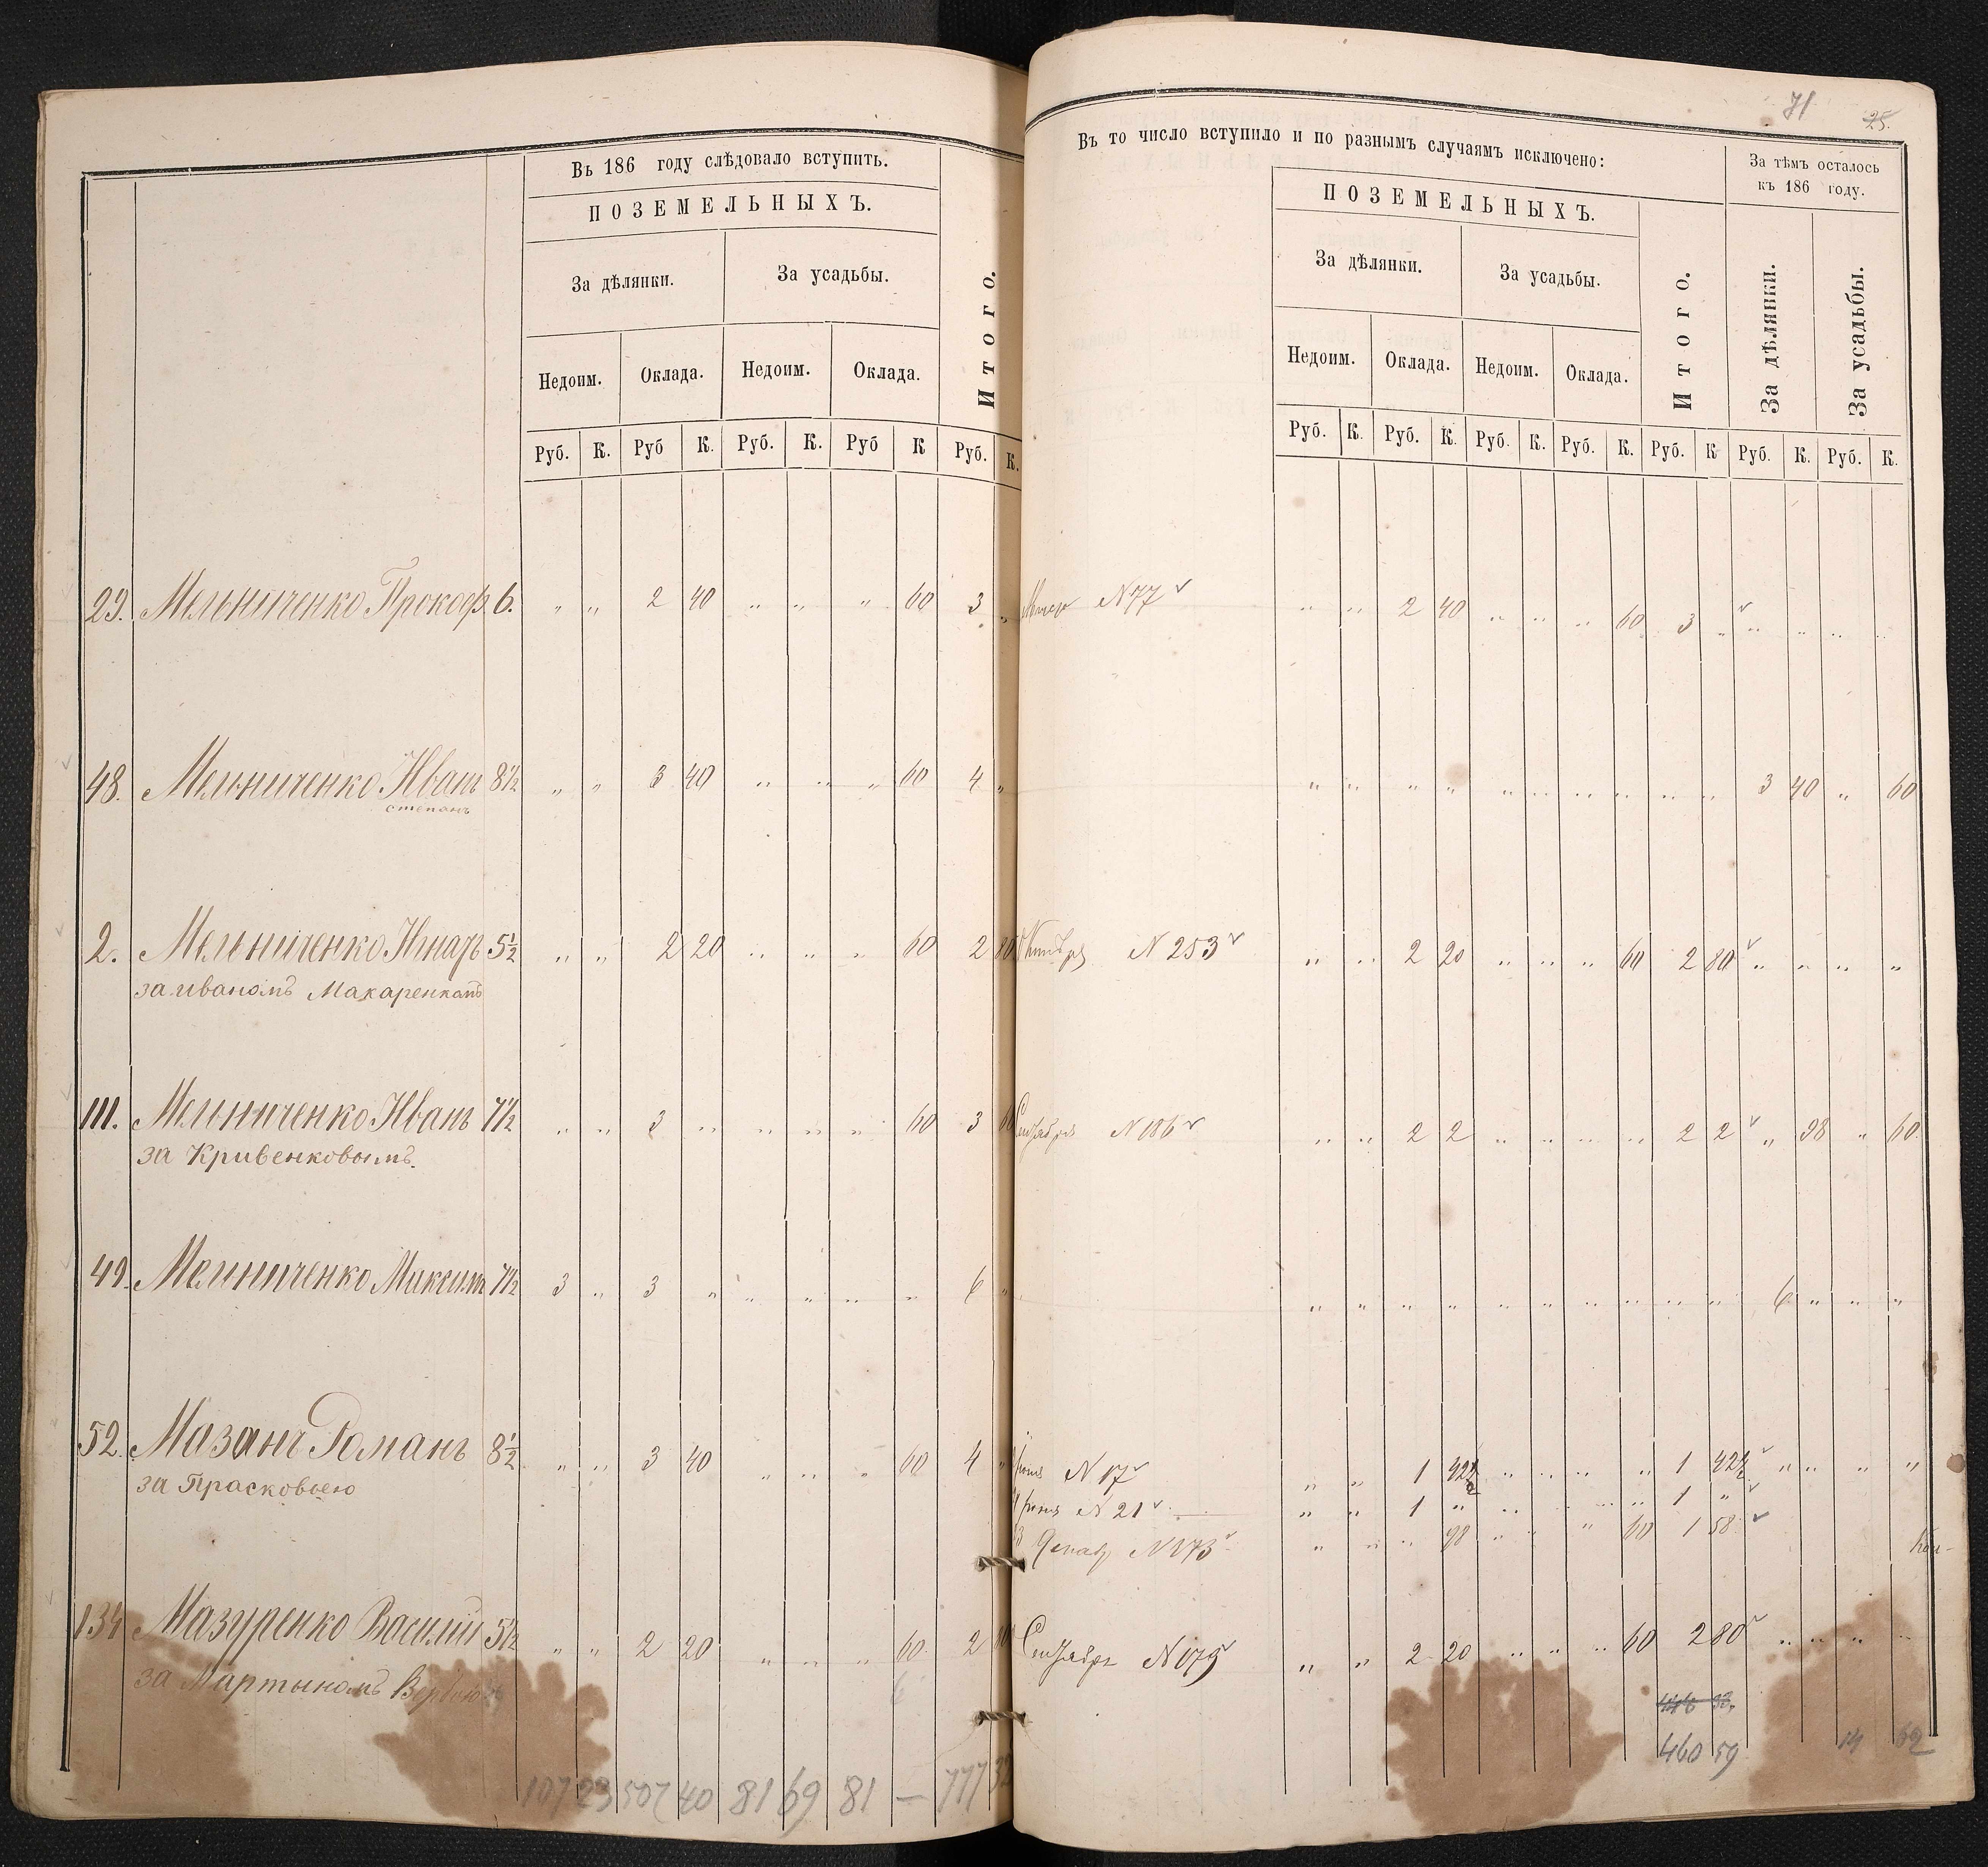 Въ 186 году слѣдовало вступить.
ПОЗЕМЕЛЬНЫХЪ.
За дѣлянки. За усадьбы.
Итого.
Недоим. Оклада. Недоим. Оклада.
Руб. К. Руб К. Руб. К. Руб К Руб. К.
29. Мельниченко Прокоф. 6. " " 2 40 " " " 60 3 "
48. Мельниченко Иванъ 8½ " " 3 40 " " " 60 4 "
степанъ
2. Мельниченко Игнатъ 5½ " " 2 20 " " " 60 2 80
за иваномъ Макаренкомъ
111. Мельниченко Иванъ 7½ " " 3 " " " " 60 3 60
за Кривенковымъ.
49. Мельниченко Максимъ 7½ 3 " 3 " " " " " 6 "
52. Мазанъ Романъ 8½ " " 3 40 " " " 60 4 "
за Прасковьею
134 Мазуренко Василій 5½ " " 2 20 " " " 60 2 80
за Мартыномъ
107 23 507 40 81 69 81 — 777 32
71 25.
Въ то число вступило и по разнымъ случаямъ исключено:
За тѣмъ осталось
къ 186 году.
ПОЗЕМЕЛЬНЫХЪ.
За дѣлянки. За усадьбы.
Итого. За дѣлянки. За усадьбы.
Недоим. Оклада. Недоим. Оклада.
Руб. К. Руб. К. Руб. К. Руб. К. Руб. К Руб. К. Руб. К.
N 77 " " 2 40 " " " 60 3 " " " " "
" " " " " " " " " " 3 40 " 60
Октября N 253 " " 2 20 " " " 60 2 80 " " " "
Сентября N 186 " " 2 2 " " " " 2 2 " 98 " 60
" " " " " " " " " " 6 " " "
Іюня N 17 " " 1 42½ " " " " 1 42½ " " " "
Іюня N 21 " " 1 " " " " " 1 "
Декаб N 273 " " " 98 " " " 60 1 58
Сентября N 179 " " 2 20 " " " 60 2 80 " " " "
460 59 14 62